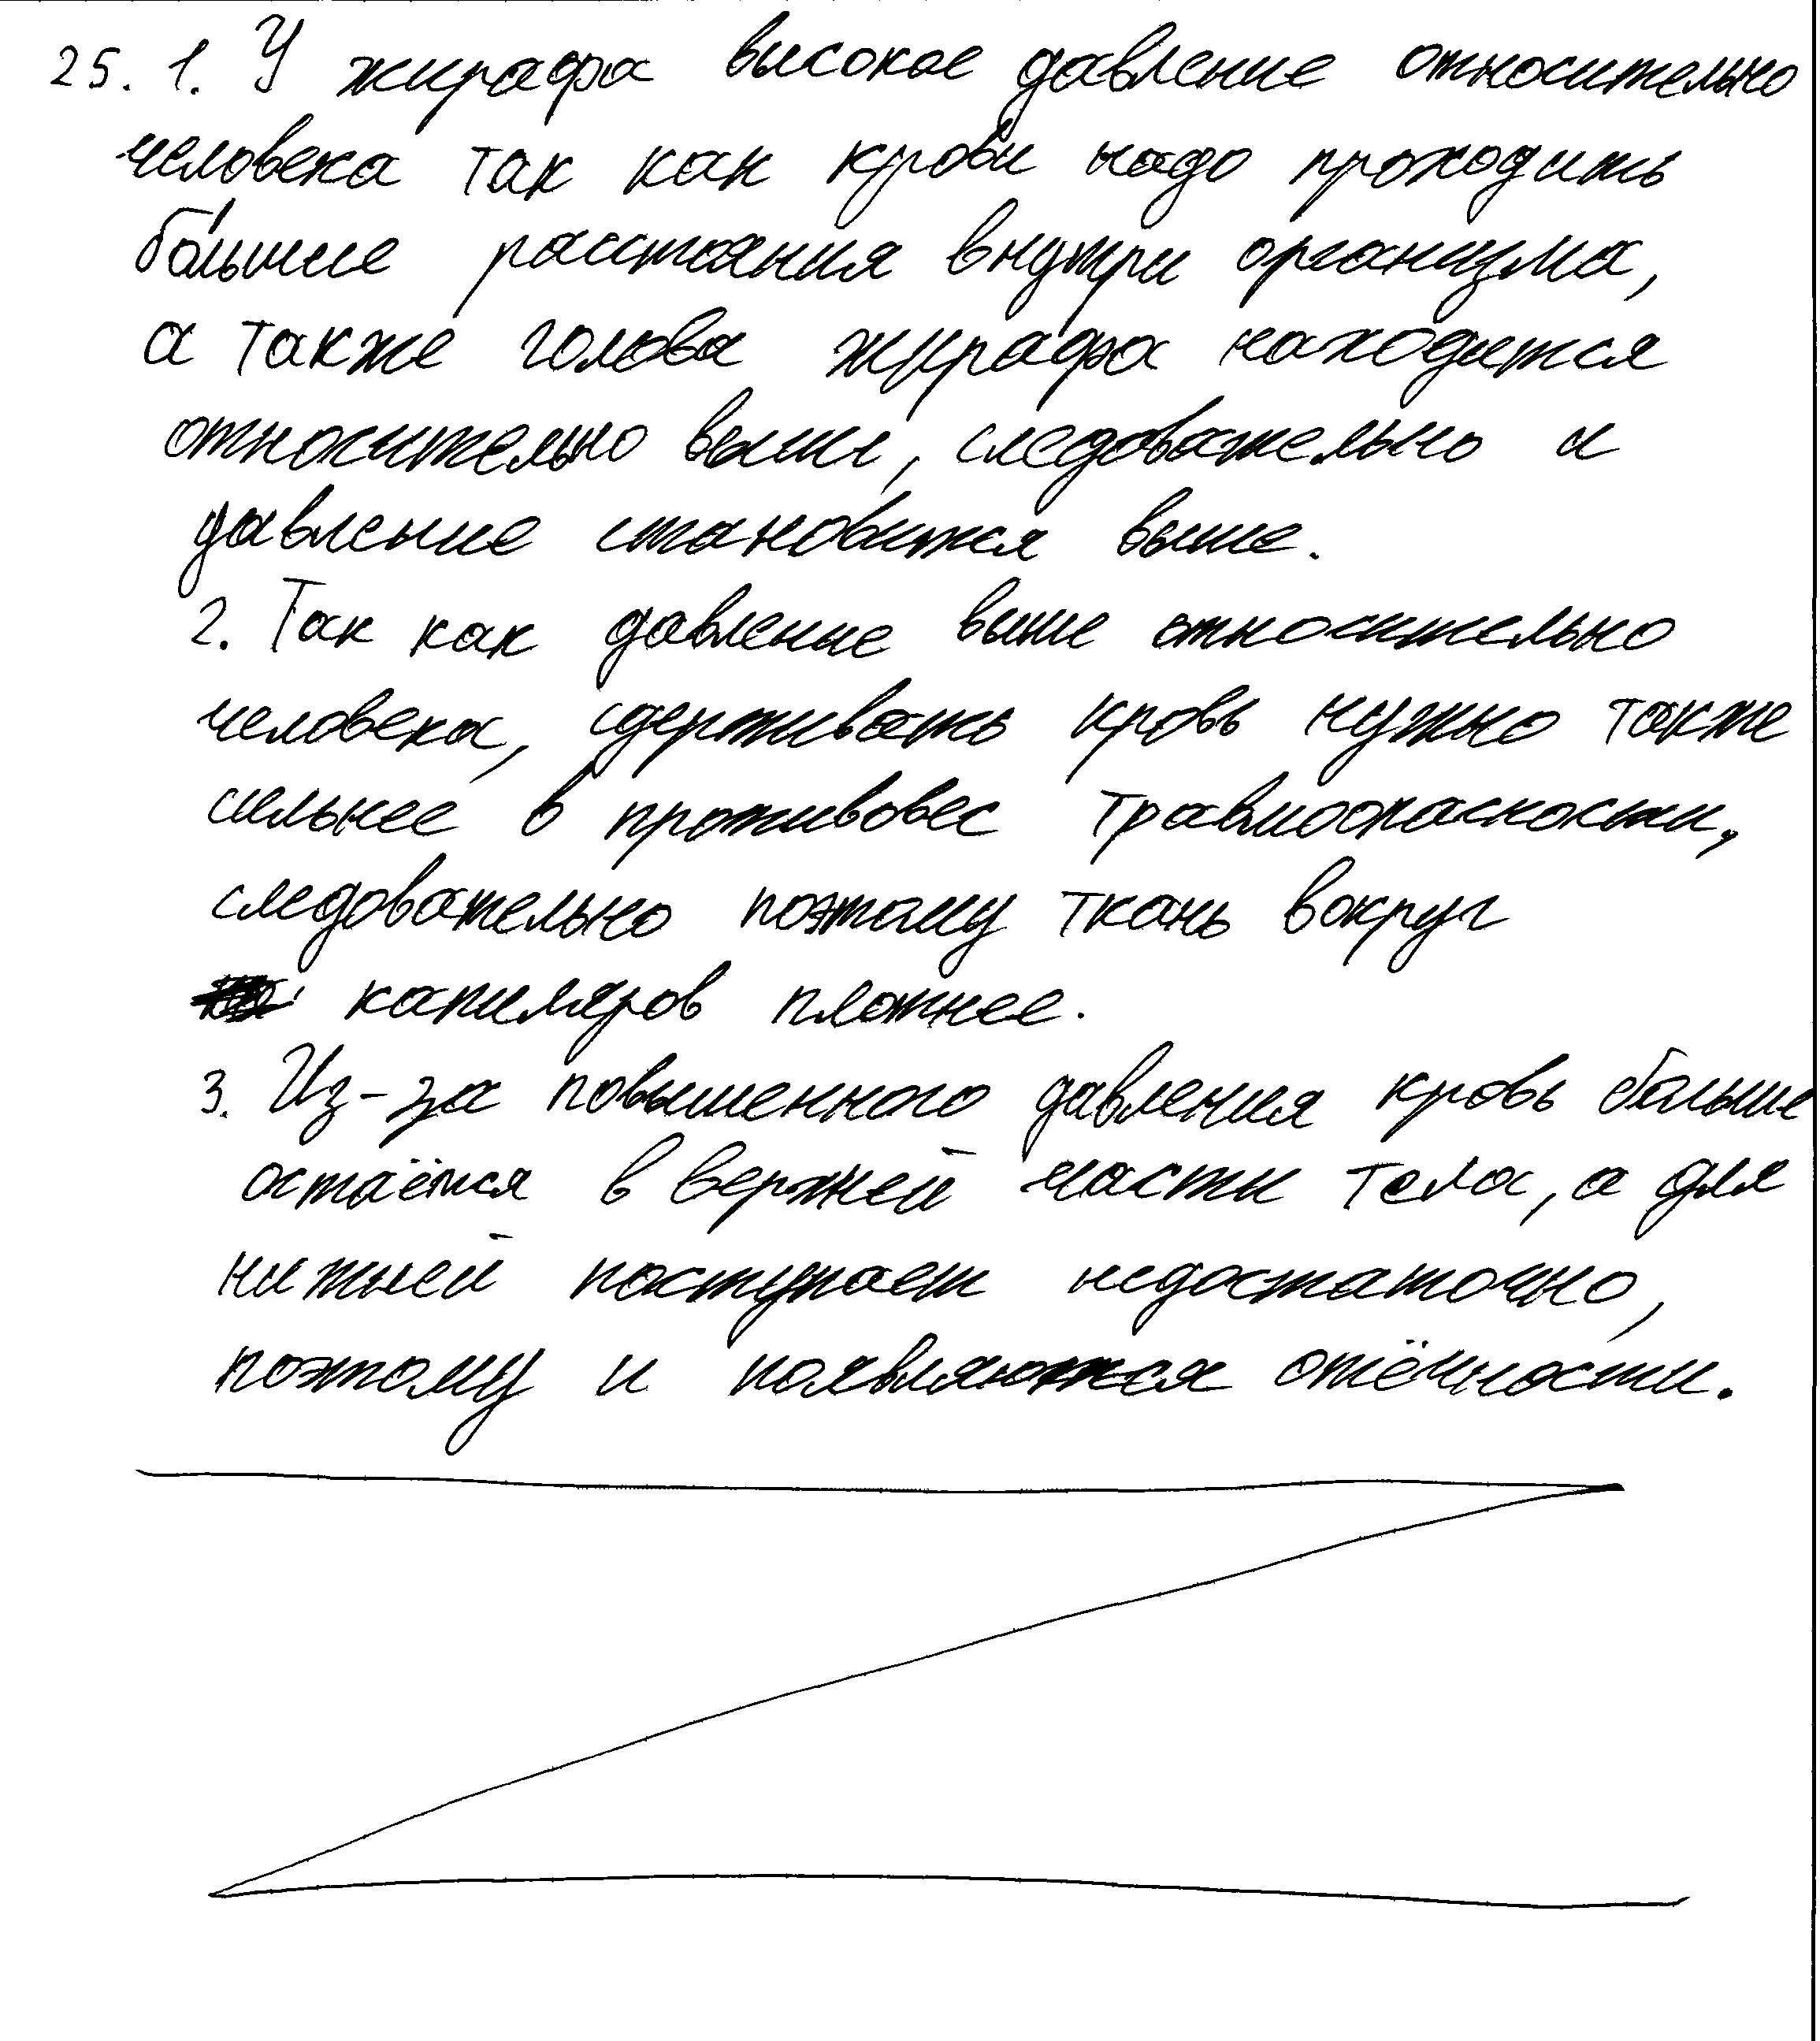 25. 1. У жирафа высокое давление относительно
человека так как крови надо проходить
бо́льшие расстояния внутри организма,
а также голова жирафа находится
относительно выше, следовательно и
давление становится выше.
2. Так как давление выше относительно
человека, сдерживать кровь нужно также
сильнее в противовес травмоопасности,
следовательно поэтому ткань вокруг
капиляров плотнее.
3. Из-за повышенного давления кровь больше
остаётся в верхней части тела, а для
нижней поступает недостаточно,
поэтому и появляются отёчности.